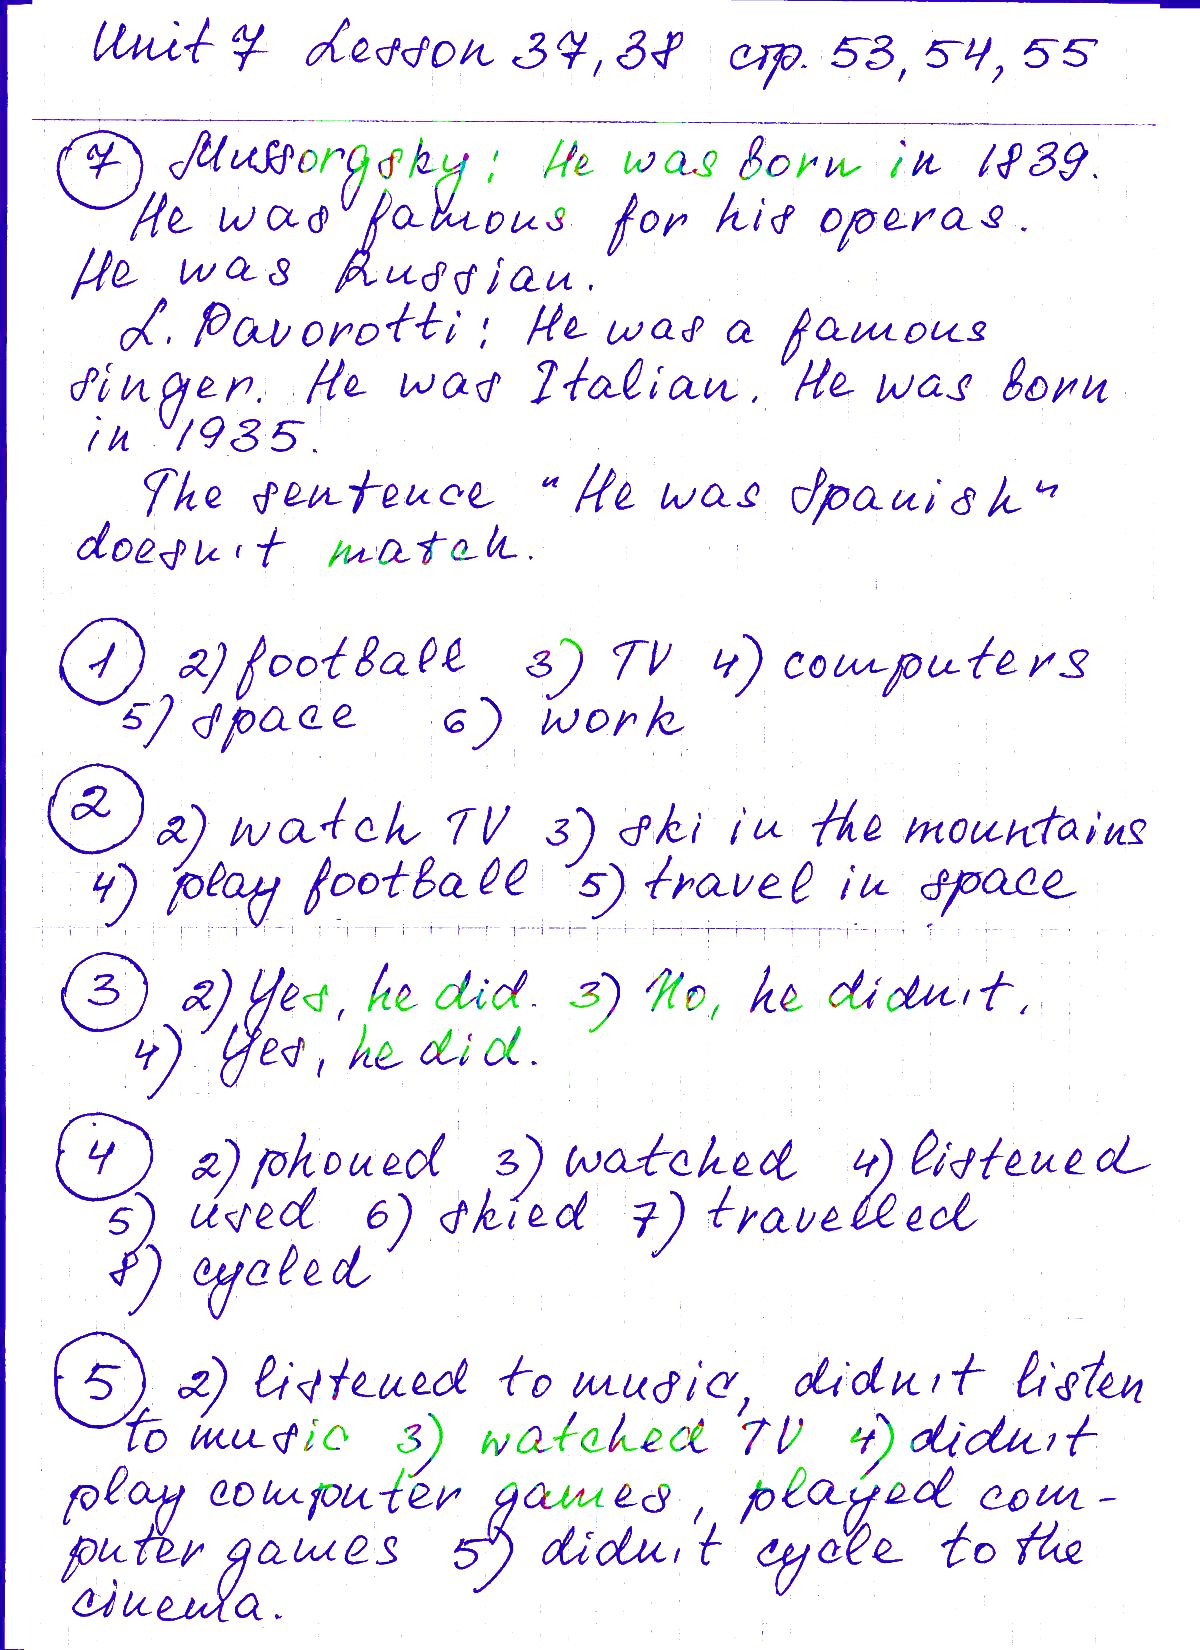 Unit 7 Lesson 37, 38 стр. 53, 54, 55
7 Mussorgsky: He was born in 1839.
He was famous for his operas.
He was Russian.
L. Pavorotti: He was a famous
singer. He was Italian. He was born
in 1935.
The sentence "He was Spanish"
doesn't match.
1 2) football 3) TV 4) computers
5) space 6) work
2 2) watch TV 3) ski in the mountains
4) play football 5) travel in space
3 2) Yes, he did. 3) No, he didn't.
4) Yes, he did.
4 2) phoned 3) watched 4) listened
5) used 6) skied 7) travelled
8) cycled
5 2) listened to music, didn't listen
to music 3) watched TV 4) didn't
play computer games, played com-
puter games 5) didn't cycle to the
cinema.